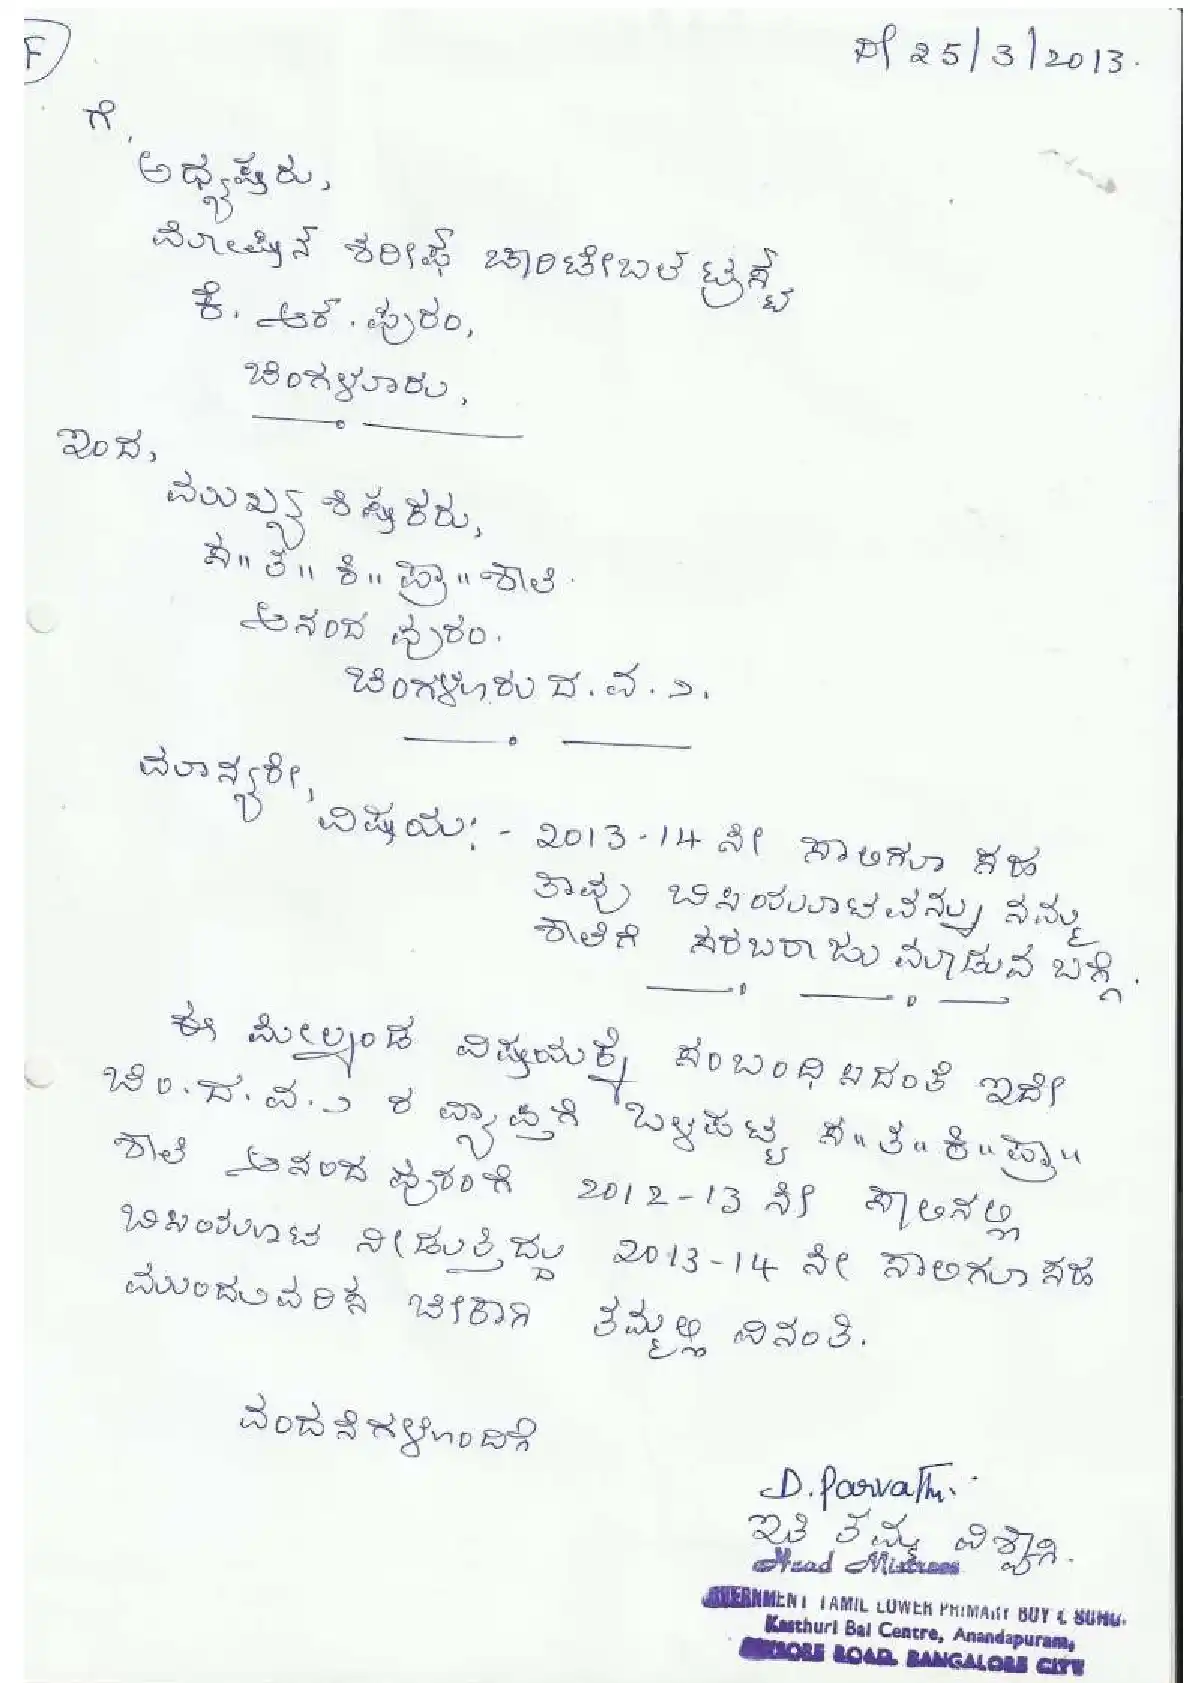 F
ದಿ 25/3/2013.
ಗೆ,
ಅಧ್ಯಕ್ಷರು,
ಮೋಹಿನ್ ಶರೀಫ್ ಚಾರಿಟೇಬಲ್ ಟ್ರಸ್ಟ್
ಕೆ. ಆರ್. ಪುರಂ,
ಬೆಂಗಳೂರು,
ಇಂದ,
ಮುಖ್ಯ ಶಿಕ್ಷಕರು,
ಸ" ತ" ಕಿ" ಪ್ರಾ" ಶಾಲೆ
ಆನಂದ ಪುರಂ.
ಬೆಂಗಳೂರು ದ. ವ. ೨.
ಮಾನ್ಯರೇ,
ವಿಷಯ: - 2013-14 ನೇ ಸಾಲಿಗೂ ಸಹ
ತಾವು ಬಿಸಿಯೂಟವನ್ನು ನಮ್ಮ
ಶಾಲೆಗೆ ಸರಬರಾಜು ಮಾಡುವ ಬಗ್ಗೆ.
ಈ ಮೇಲ್ಕಂಡ ವಿಷಯಕ್ಕೆ ಸಂಬಂಧಿಸಿದಂತೆ ಇದೇ
ಬೆಂ. ದ. ವ. ೨ ರ ವ್ಯಾಪ್ತಿಗೆ ಒಳಪಟ್ಟ ಸ" ತ" ಕಿ" ಪ್ರಾ"
ಶಾಲೆ ಆನಂದ ಪುರಂಗೆ 2012-13 ನೇ ಸಾಲಿನಲ್ಲಿ
ಬಿಸಿಯೂಟ ನೀಡುತ್ತಿದ್ದು 2013-14 ನೇ ಸಾಲಿಗೂ ಸಹ
ಮುಂದುವರಿಸ ಬೇಕಾಗಿ ತಮ್ಮಲ್ಲಿ ವಿನಂತಿ.
ವಂದನೆಗಳೊಂದಿಗೆ
D. Parvathi.
ಇತಿ ತಮ್ಮ ವಿಶ್ವಾಸಿ.
Head Mistress
GOVERNMENT TAMIL LOWER PRIMARY BOY &
Kasthuri Bai Centre, Anandapuram,
MYSORE ROAD, BANGALORE CITY